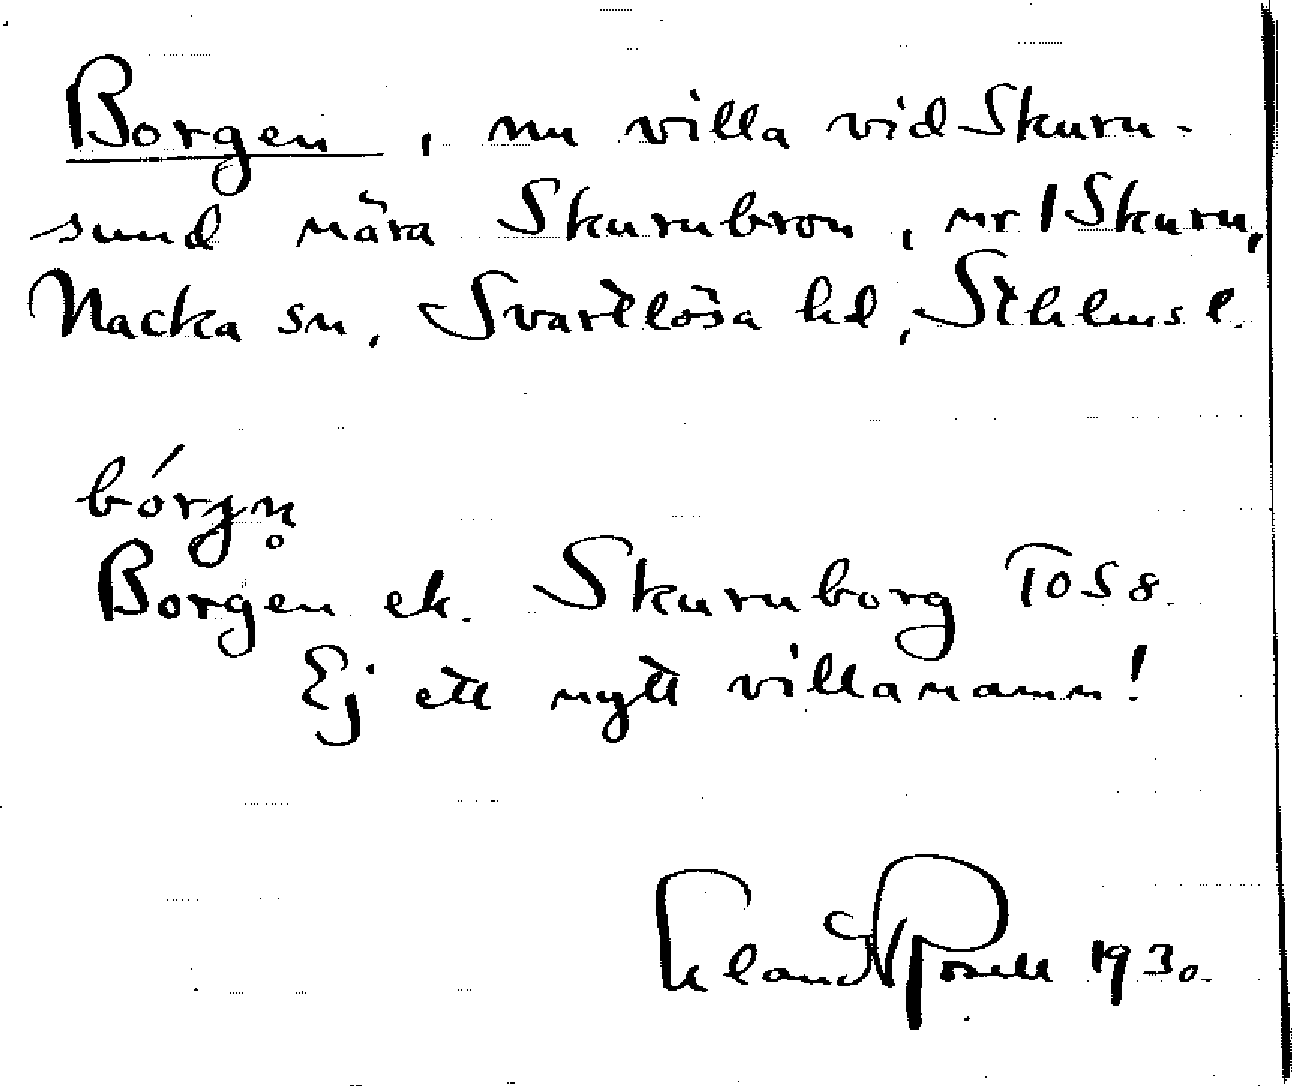 Borgen, nu villa vid Skuru-
sund nära Skurubron, nr 1 Skuru,
Nacka sn, Svartlösa hd, Sthlms l.
bórgn̥
Borgen ek. Skuruborg T058.
Ej ett nytt villanamn!
1930.